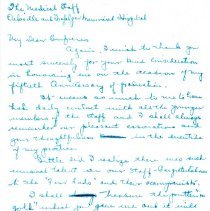 The Medical Staff
Oakville and Trafalgar Memorial Hospital
My Dear Confreres
Again, I wish to thank you
most sincerely for your kind consideration
in honouring me on the occasion of my
fiftieth Anniversary of graduation.
It means so much to me to have
had daily contact with all the younger
members of the staff and I shall always
remember our pleasant associations and
your thoughtfulness in the
of my
Little did I realize there was such
musical talent in our Staff. Congratulations
to the "Five Kents" and their accompanists.
I shall treasure the
gold which you gave me and it will